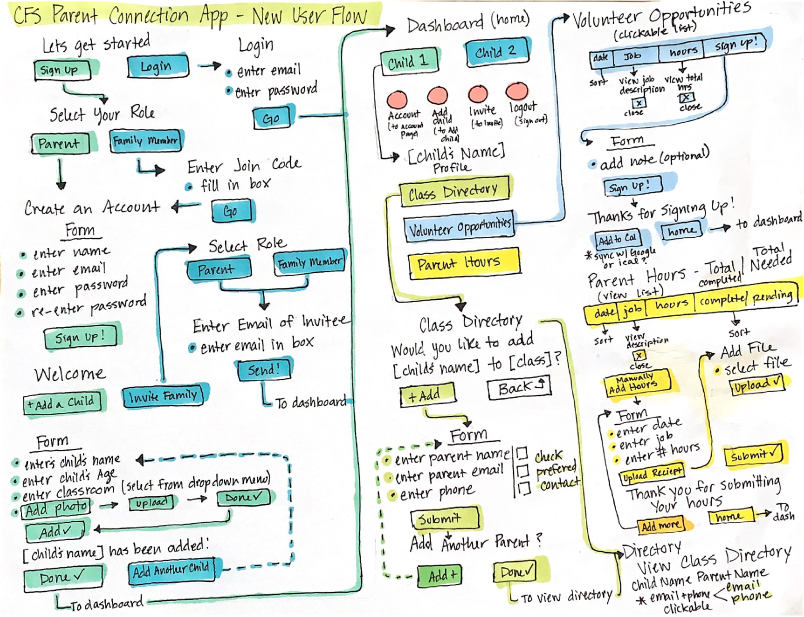 CFS Parent Connection App - New User Flow
Lets get started
Sign Up
Login
Login
enter email
enter password
Go
Select Your Role
Parent
Family Member
Enter Join Code
fill in box
Go
Create an Account
Form
enter name
enter email
enter password
re-enter password
Sign Up!
Select Role
Parent
Family Member
Enter Email of Invitee
enter email in box
Send!
To dashboard
Welcome
+Add a Child
Invite Family
Form
enter's child's name
enter child's Age
enter classroom (select from dropdown menu)
Add photo
upload
Done ✓
Add ✓
[child's name] has been added!
Done ✓
Add Another Child
To dashboard
Dashboard (home)
Child 1
Child 2
Account
(to Account Page)
Add child
(to Add child)
Invite
(to Invite)
logout
(sign out)
[child's Name]
Profile
Class Directory
Volunteer Opportunities
Parent Hours
Class Directory
Would you like to add
[child's name] to [class]?
+ Add
Back
Form
enter parent name
enter parent email
enter phone
check
prefered
contact
Submit
Add Another Parent?
Add +
Done ✓
To view directory
Volunteer Opportunities
(clickable list)
date
Job
hours
sign up!
sort
view job
description
x
close
view total
hrs
x
close
Form
add note (optional)
Sign Up!
Thanks for Signing Up!
Add to Cal
home
to dashboard
* sync w/ Google
or ical?
Parent Hours - Total completed / Total Needed
(view list)
date
job
hours
complete/pending
sort
view
description
x
close
sort
Manually
Add Hours
Form
enter date
enter job
enter # hours
Upload Reciept
Add File
select file
Upload ✓
Submit ✓
Thank you for submitting
Your hours
Add more
home
To
dash
Directory
View Class Directory
Child Name Parent Name
* email + phone
clickable
email
phone